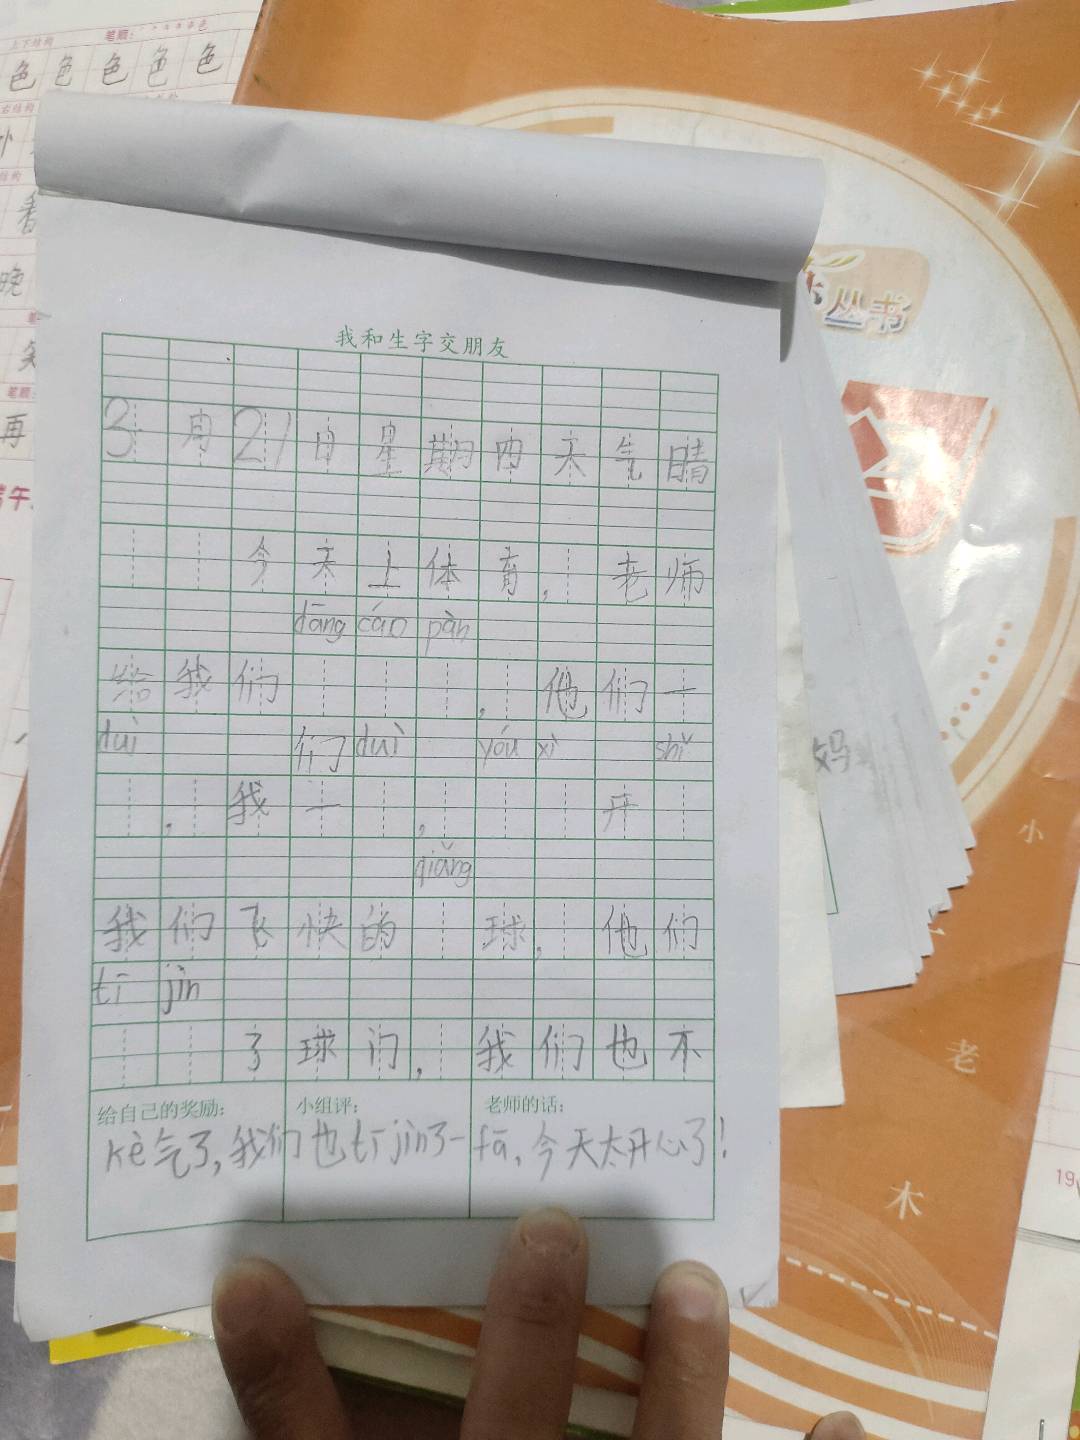 上下结构 笔顺:
色 色 色 色 色
右结构
香
晚
笔顺:
再
丛书
我和生字交朋友
3月21日星期四天气晴
今天上体育,老师
dāng cáo pàn
给我们 ,他们一
duì 们 duì yóu xì shǐ
,我一 , 开
qiǎng
我们飞快的 球,他们
tī jìn
了球门,我们也不
给自己的奖励: 小组评: 老师的话:
kè气了,我们也tī jìn了一fā,今天太开心了!
妈
小
老
木
19